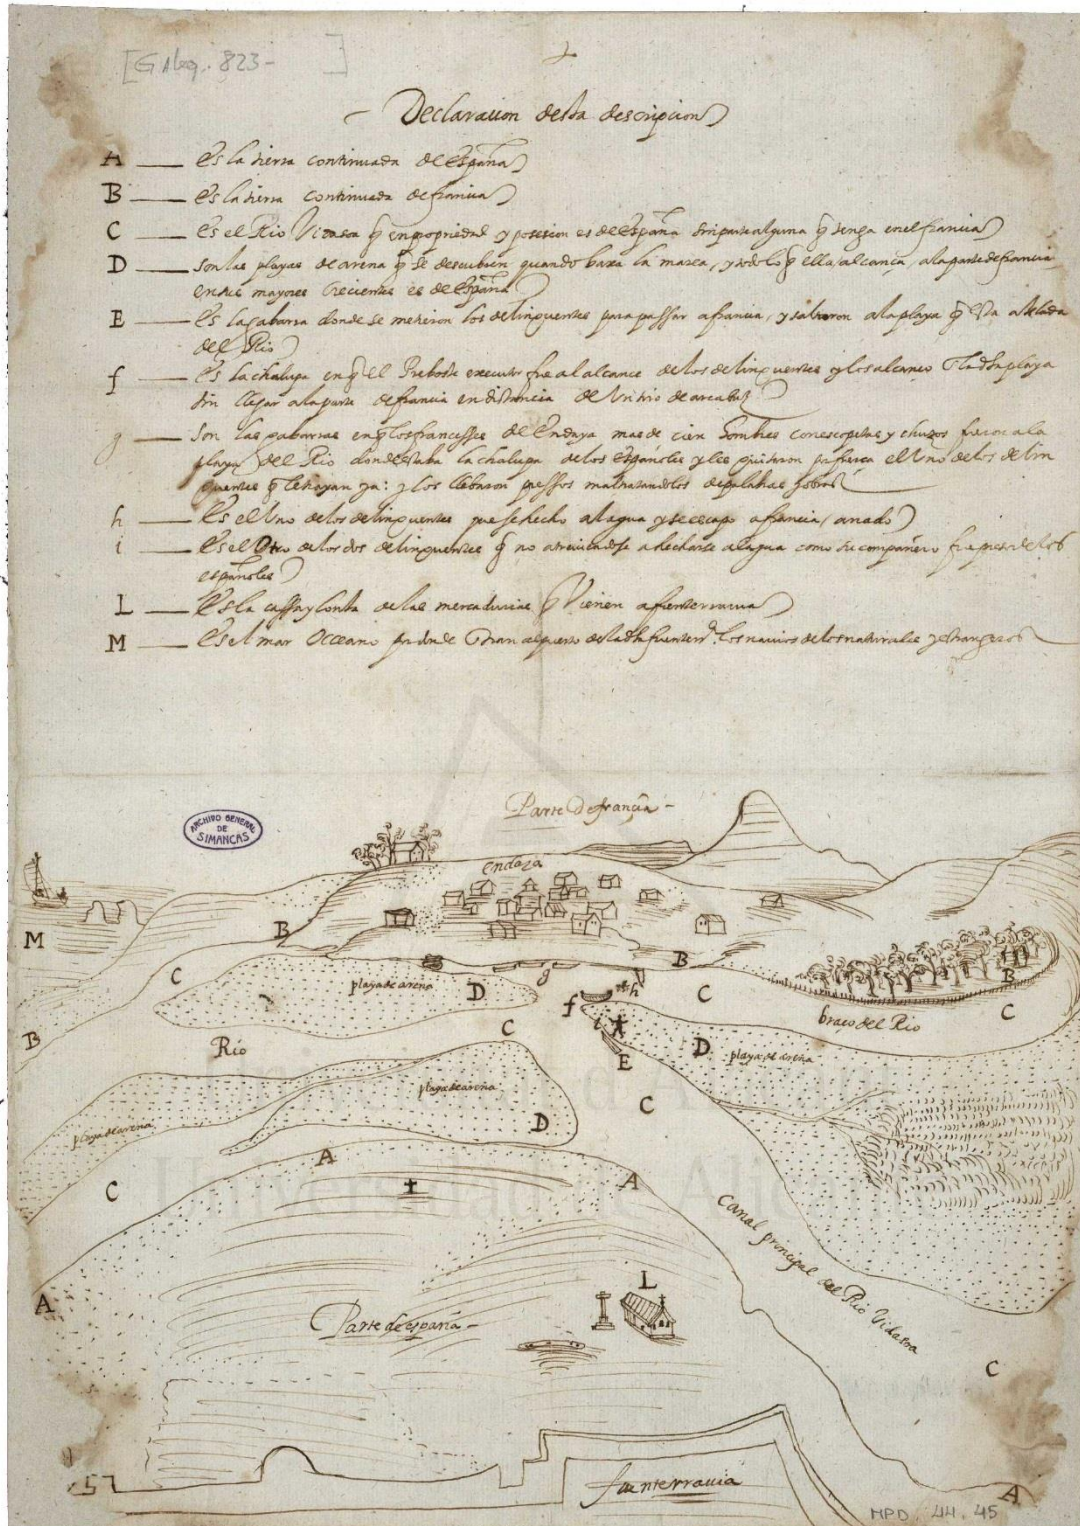 [G Aleg. 823- ]
Declaracion desta descripcion
A — Es la tierra continuada de España
B — Es la tierra continuada de francia
C — Es el Rio Vidasoa q̃ en propriedad y posesion es de España sin parte alguna q̃ tenga en el francia
D — Son las playas de arena q̃ se descubren quando baxa la marea, y todo lo q̃ ella alcança, a la parte de francia
en sus mayores crecientes es de España
E — Es la gabarra donde se metieron los delinquentes para passar a francia, y salieron a la playa q̃ esta
del Rio
f — Es la chalupa en q̃ el Preboste executor fue al alcance de los delinquentes y los alcanço playa
sin llegar a la parte de francia en distancia de Un tiro de arcabuz
g — Son las gabarras en q̃ los francesses de Endaya mas de cien hombres con escopetas y chuzos fueron a la
playa del Rio donde estaba la chalupa de los españoles y les quitaron por fuerça el Uno de los delin
quentes q̃ trayan ya: y los llebaron pressos maltratandolos de palabras y obras
h — Es el Uno de los delinquentes que se hecho al agua y se escapo a francia a nado
i — Es el Otro de los dos delinquentes q̃ no atreviendose a hecharse al agua como su compañero fue preso de los
españoles
L — Es la cassa y lonja de las mercadurias q̃ Vienen a fuenterravia
M — Es el mar Occeano por donde entran al puerto de la dha fuenterᵃ los navios de los naturales y estrangeros
Parte de françia -
ARCHIVO GENERAL
DE
SIMANCAS
endaya
M
B
B
B
C
playa de arena
D
g
h
f
C
C
braço del Rio
B
Rio
C
i
E
D
playa de arena
playa de arena
playa de arena
D
C
C
A
A
A
Canal principal del Rio Vidasoa
L
Parte de españa -
C
fuenterravia
A
57
MPD. 44. 45
Universidad de Alicante